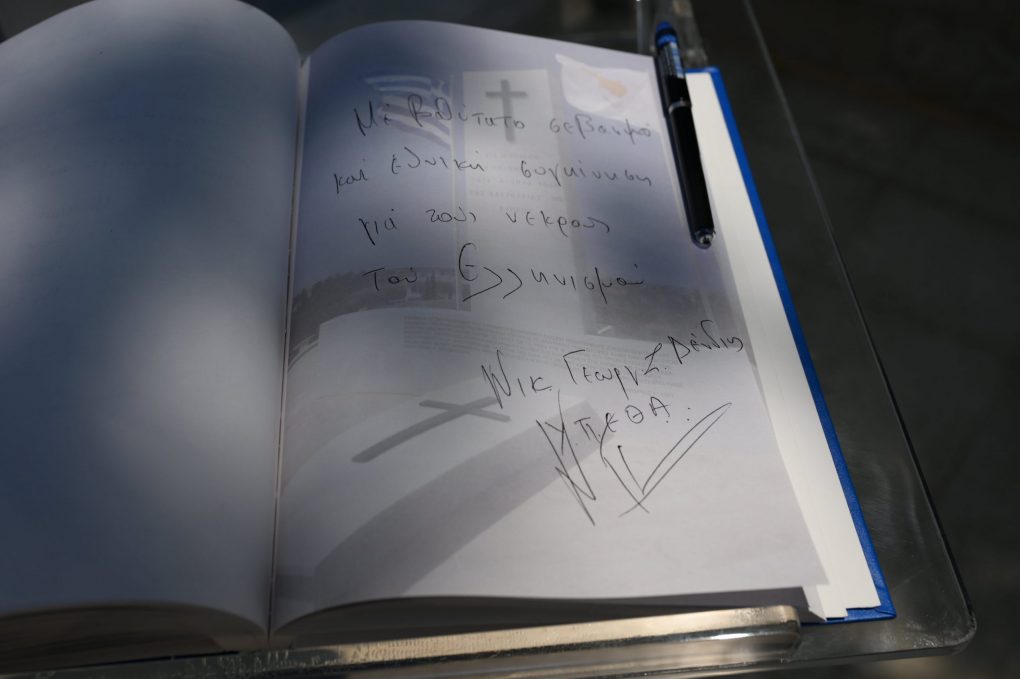 Μέ βαθύτατο σεβασμό
και εθνική συγκίνηση
γιά τους νεκρούς
Τού Ελληνισμού
Νικ. Γεωργ. Σ. Δένδιας
ΥΠΕΘΑ.